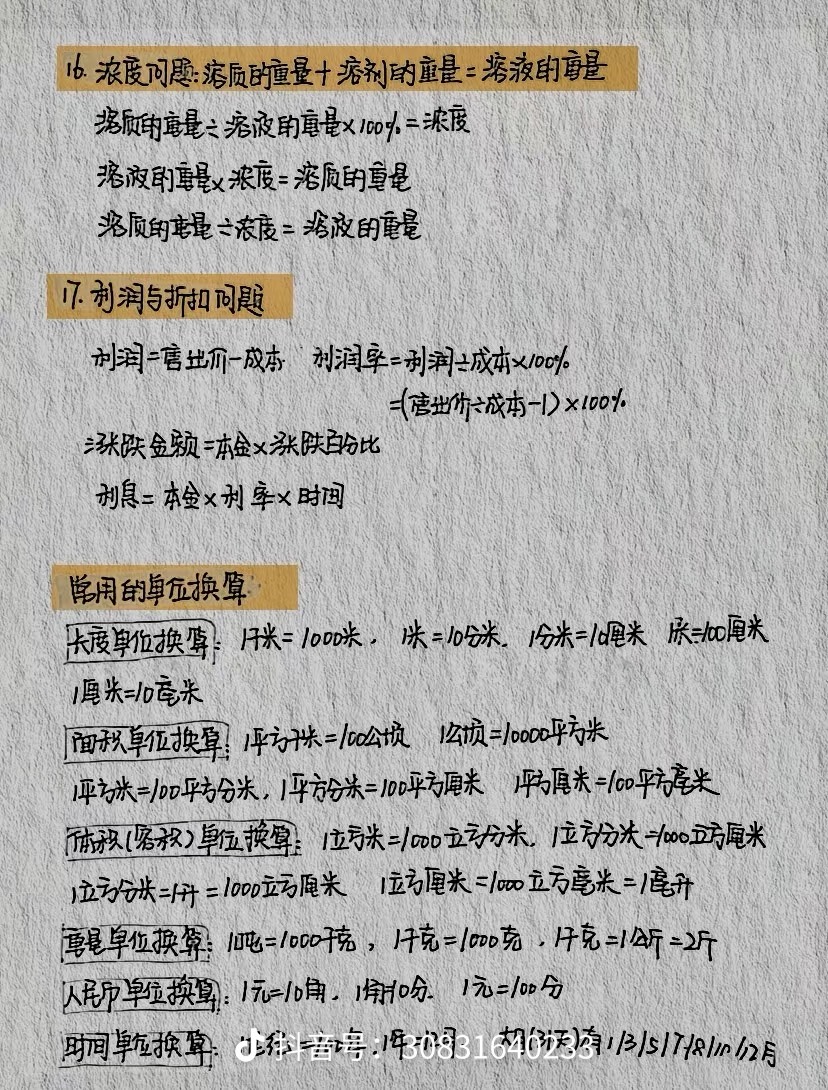 16. 浓度问题:溶质的重量+溶剂的重量=溶液的重量
溶质的重量÷溶液的重量×100%=浓度
溶液的重量×浓度=溶质的重量
溶质的重量÷浓度=溶液的重量
17. 利润与折扣问题
利润=售出价-成本 利润率=利润÷成本×100%
=(售出价÷成本-1)×100%
涨跌金额=本金×涨跌百分比
利息=本金×利率×时间
常用的单位换算
长度单位换算: 1千米=1000米, 1米=10分米, 1分米=10厘米 1米=100厘米
1厘米=10毫米
面积单位换算: 1平方千米=100公顷 1公顷=10000平方米
1平方米=100平方分米, 1平方分米=100平方厘米 1平方厘米=100平方毫米
体积(容积)单位换算: 1立方米=1000立方分米, 1立方分米=1000立方厘米
1立方分米=1升=1000立方厘米 1立方厘米=1000立方毫米=1毫升
重量单位换算: 1吨=1000千克, 1千克=1000克, 1千克=1公斤=2斤
人民币单位换算: 1元=10角, 1角=10分. 1元=100分
时间单位换算: 1年=12月 (31天)有1/3/5/7/8/10/12月
抖音号: 30831640233